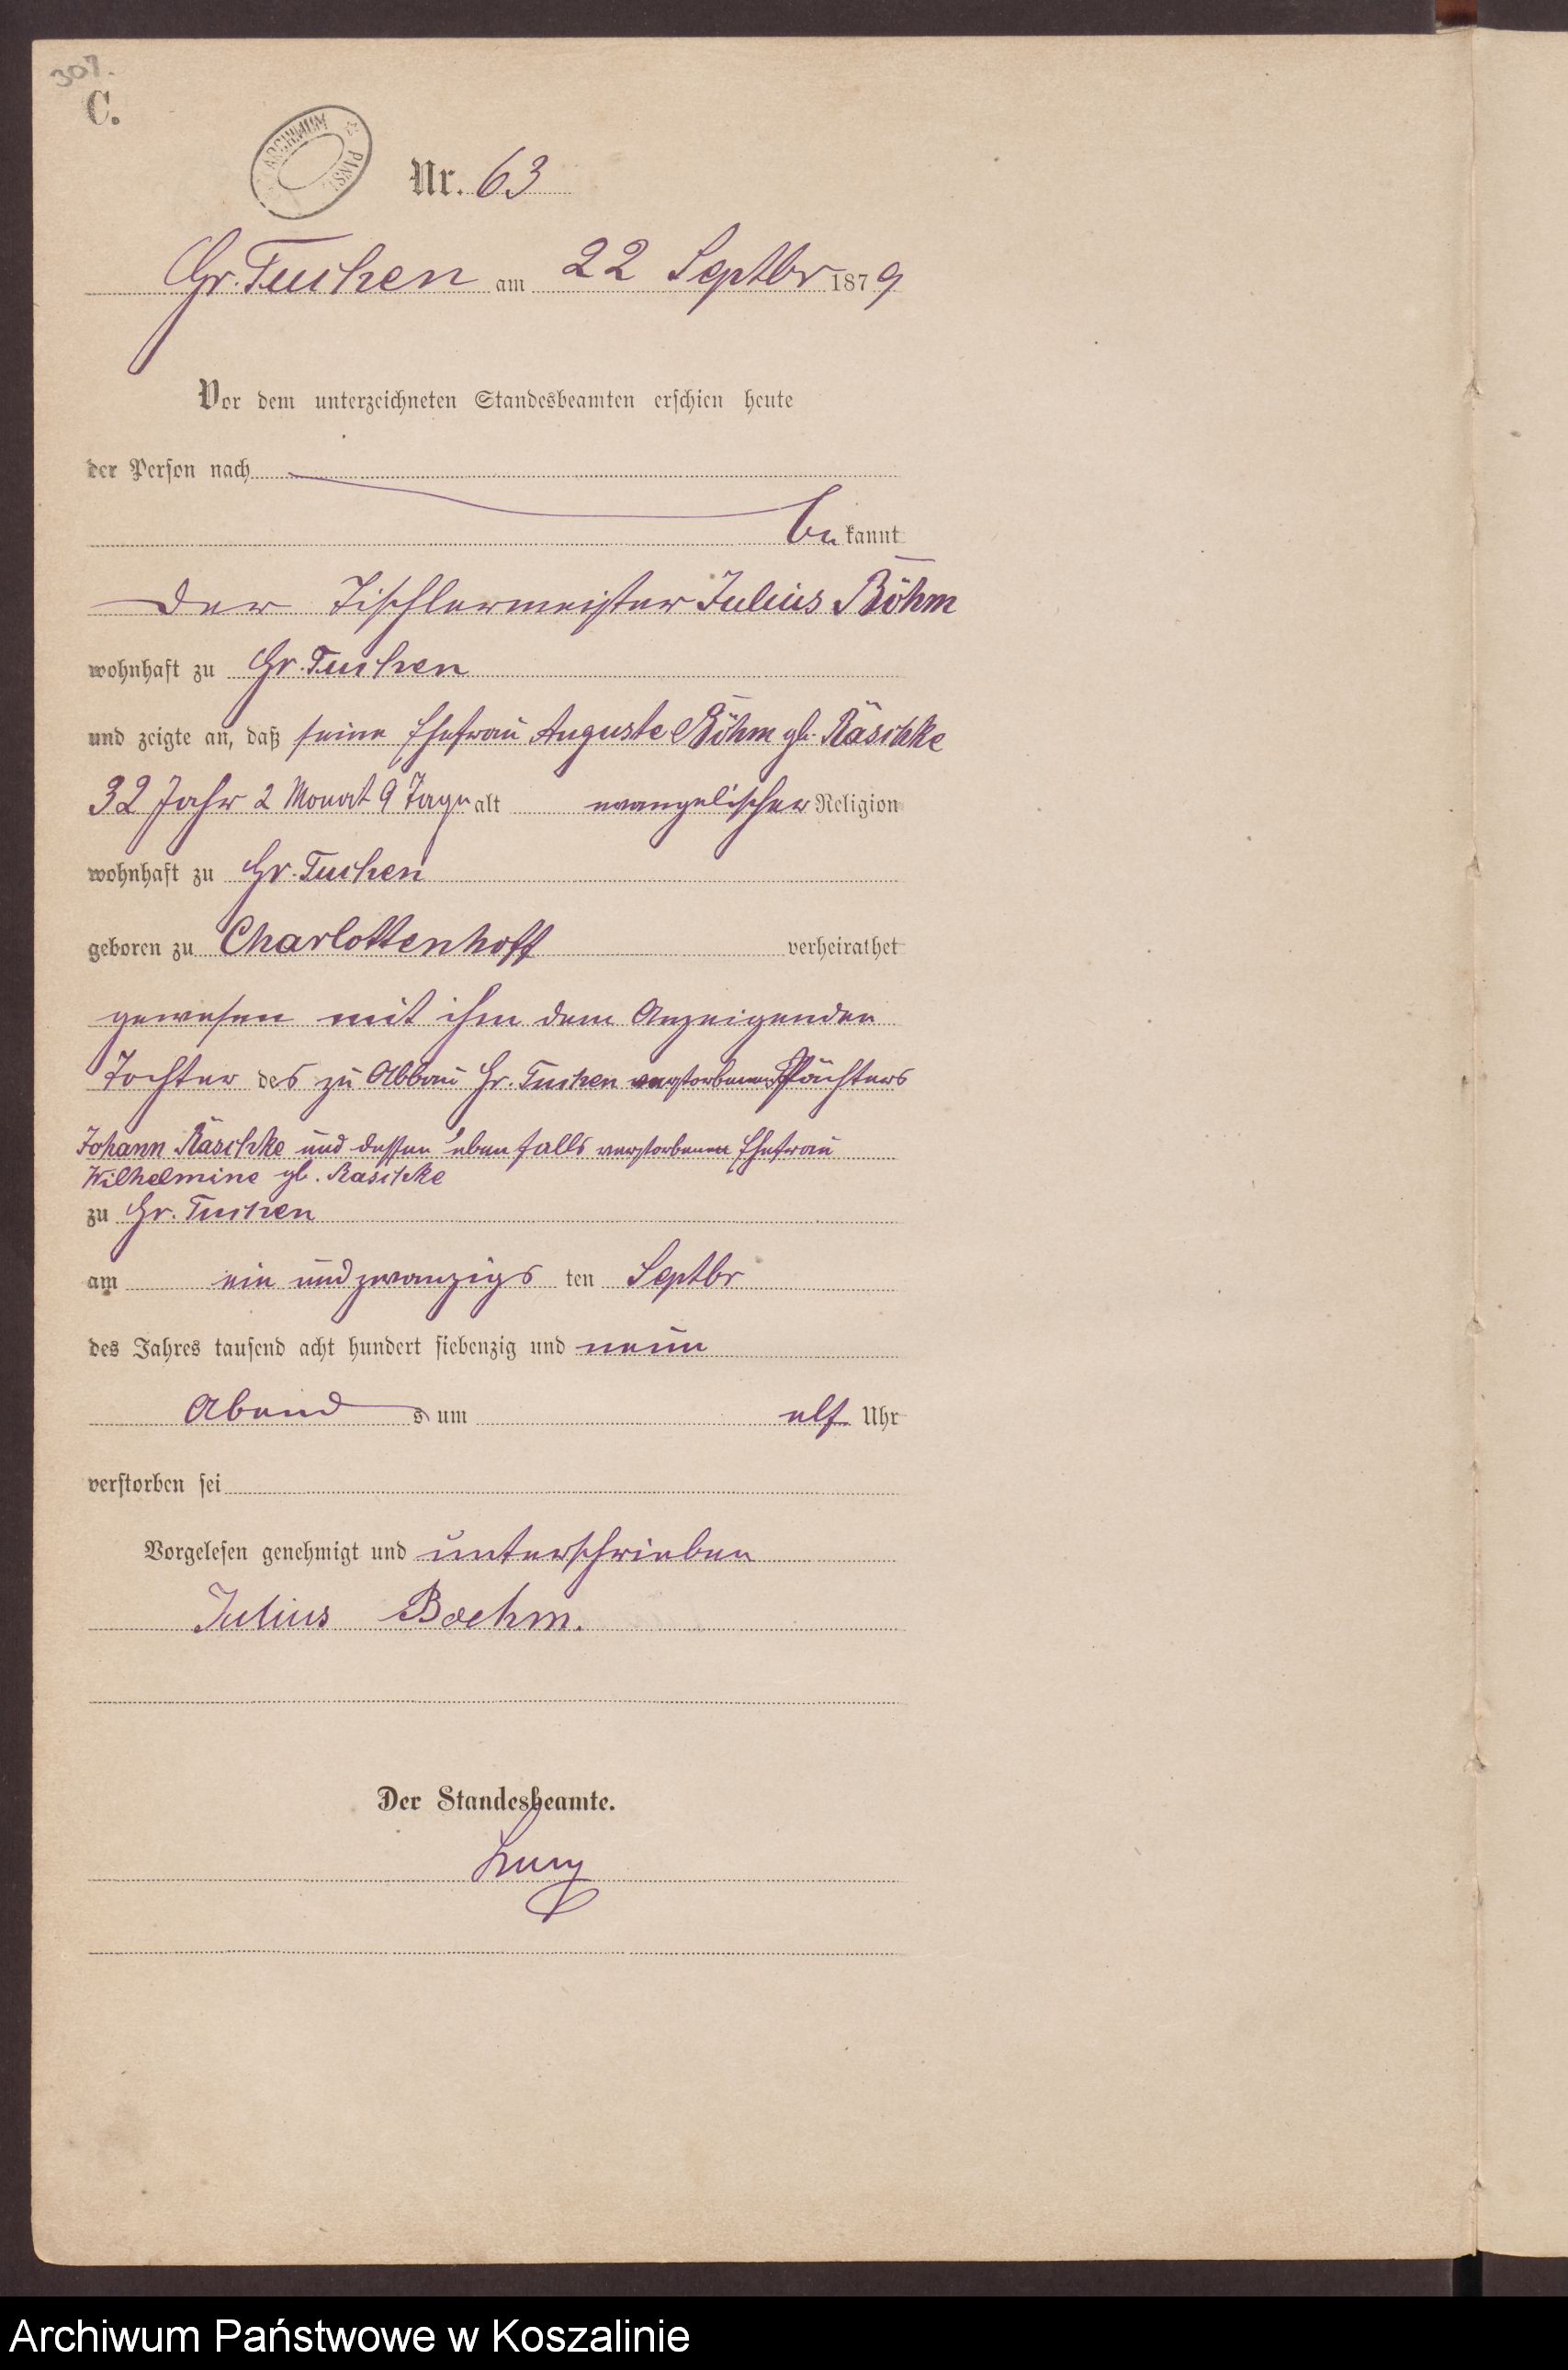 307.
C.
ARCHIWUM PAŃST.
Nr. 63
Gr. Tuchen am 22 Septbr 1879
Vor dem unterzeichneten Standesbeamten erschien heute
der Person nach
bekannt
der Tischlermeister Julius Böhm
wohnhaft zu Gr. Tuchen
und zeigte an, daß seine Ehefrau Auguste Böhm gb. Räschke
32 Jahr 2 Monat 9 Tage alt evangelischer Religion
wohnhaft zu Gr. Tuchen
geboren zu Charlottenhoff verheirathet
gewesen mit ihm dem Anzeigenden
Tochter des zu Abbau Gr. Tuchen verstorbenen Pächters
Johann Räschke und dessen ebenfalls verstorbenen Ehefrau
Wilhelmine gb. Raschke
zu Gr. Tuchen
am ein und zwanzigsten Septbr
des Jahres tausend acht hundert siebenzig und neun
Abends um elf Uhr
verstorben sei
Vorgelesen genehmigt und unterschrieben
Julius Boehm.
Der Standesbeamte.
Archiwum Państwowe w Koszalinie